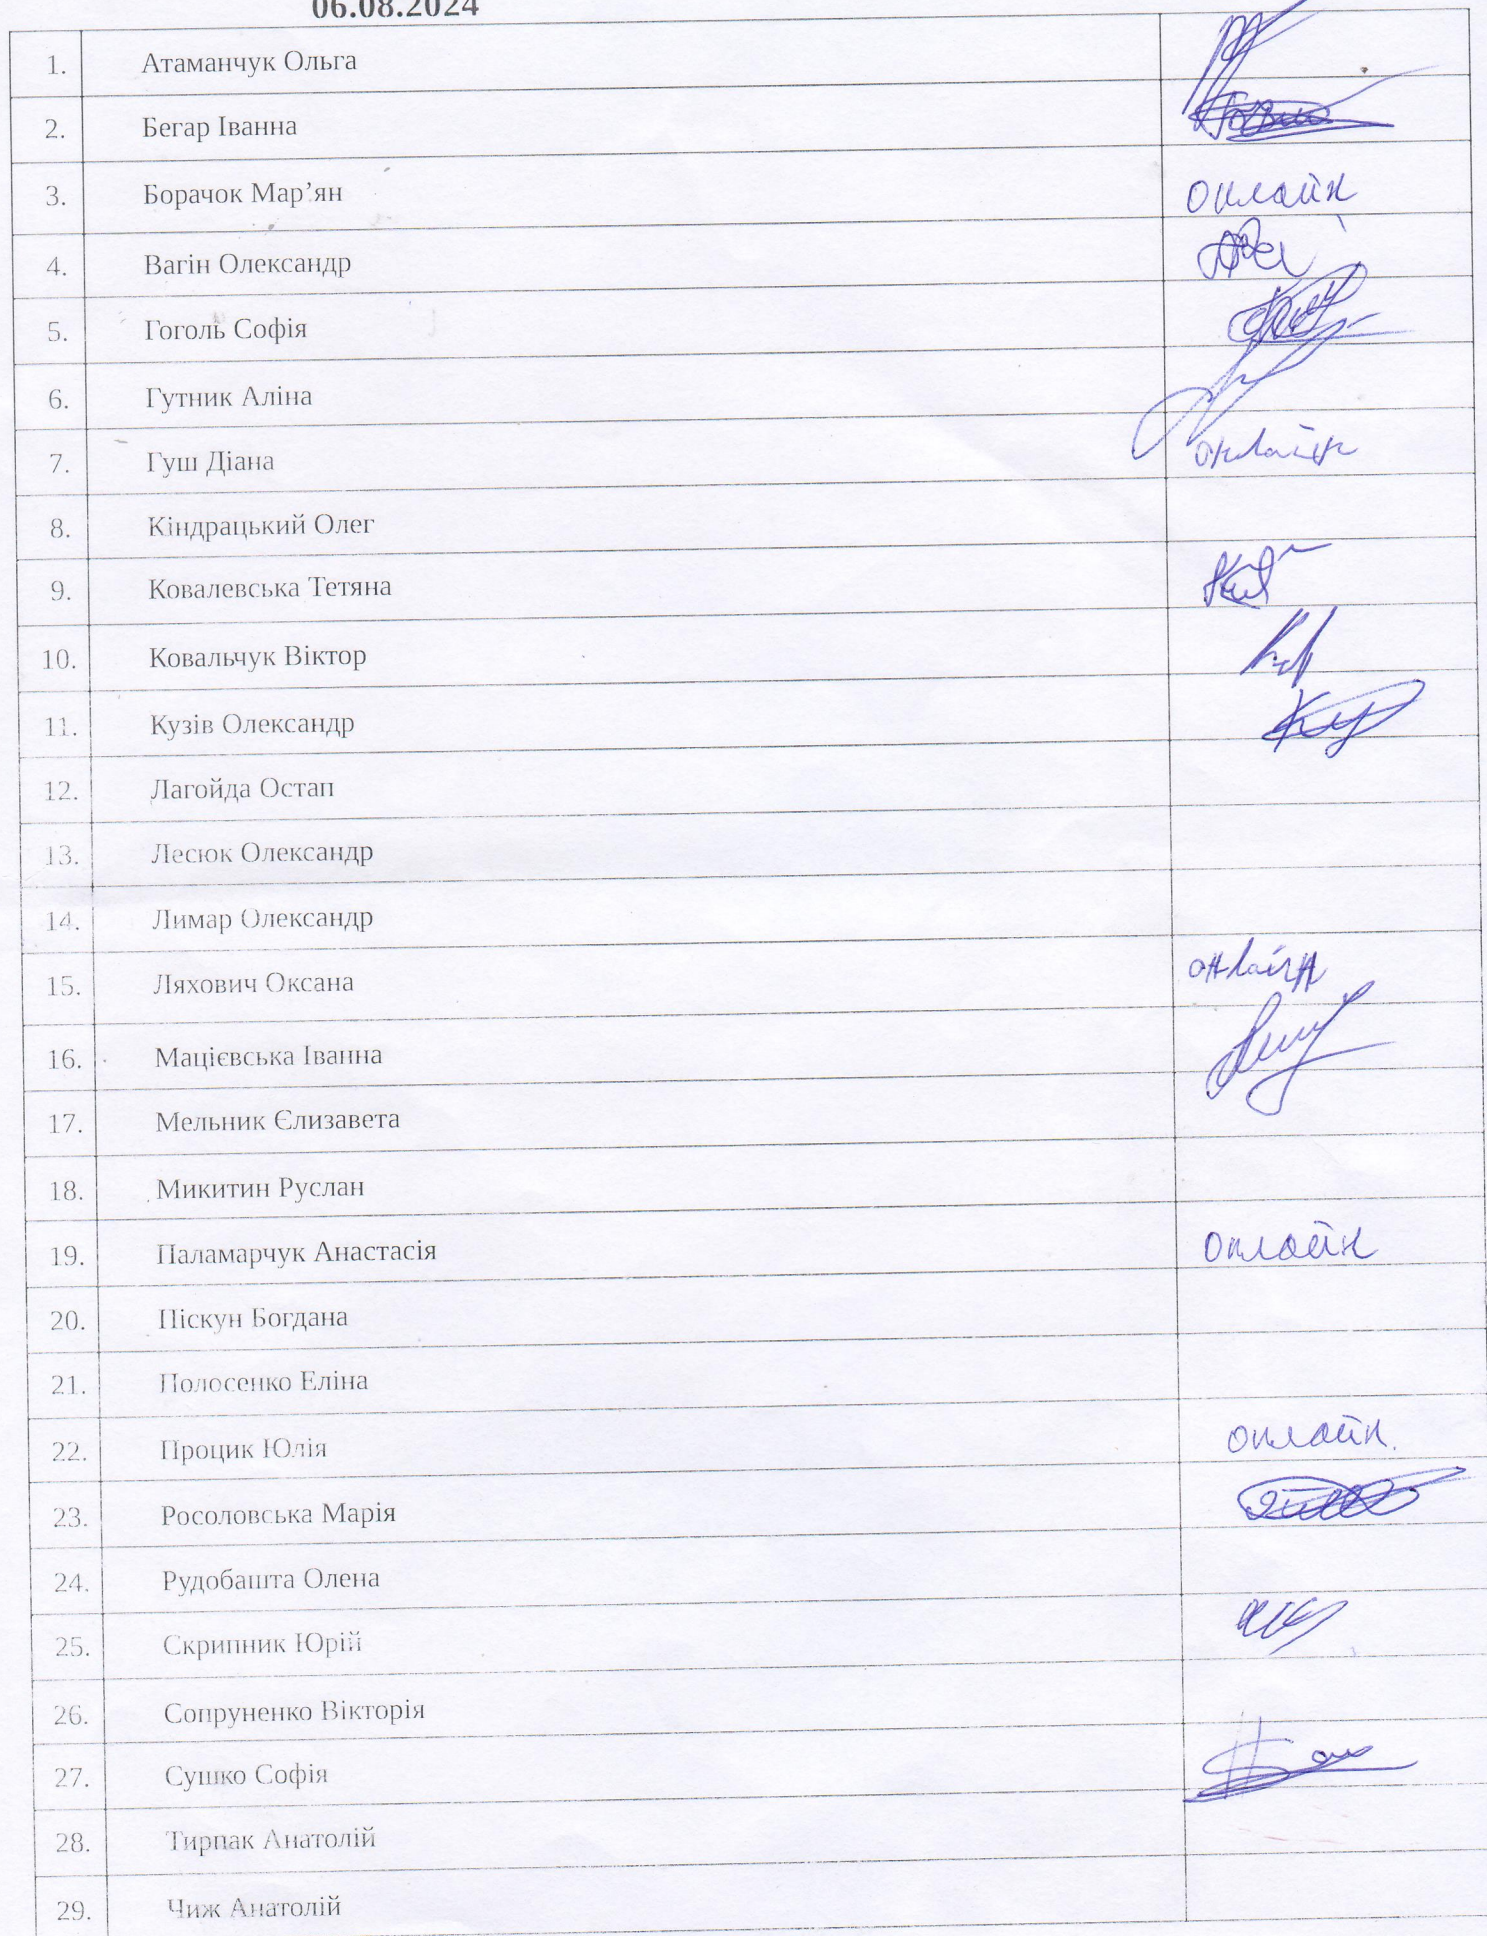 06.08.2024
1. Атаманчук Ольга
2. Бегар Іванна
3. Борачок Мар’ян онлайн
4. Вагін Олександр
5. Гоголь Софія
6. Гутник Аліна
7. Гуш Діана онлайн
8. Кіндрацький Олег
9. Ковалевська Тетяна
10. Ковальчук Віктор
11. Кузів Олександр
12. Лагойда Остап
13. Лесюк Олександр
14. Лимар Олександр
15. Ляхович Оксана онлайн
16. Мацієвська Іванна
17. Мельник Єлизавета
18. Микитин Руслан
19. Паламарчук Анастасія онлайн
20. Піскун Богдана
21. Полосенко Еліна
22. Процик Юлія онлайн.
23. Росоловська Марія
24. Рудобашта Олена
25. Скрипник Юрій
26. Сопруненко Вікторія
27. Сушко Софія
28. Тирпак Анатолій
29. Чиж Анатолій